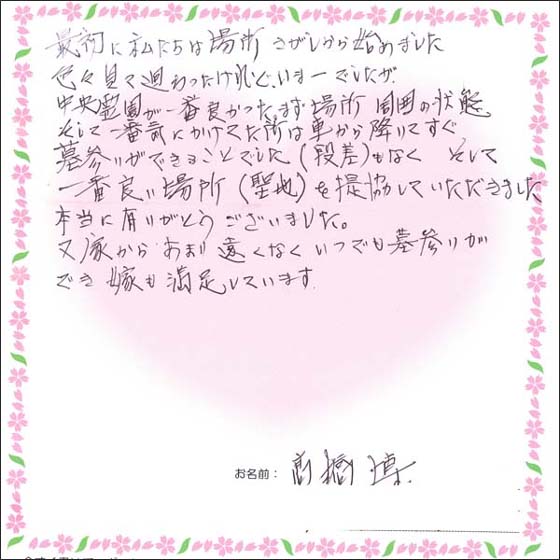 最初に私たちは場所さがしから始めました
色々見て廻わったけれど、いまーでしたが
中央霊園が一番良かった、まず場所 周囲の状態
そして一番気にかけてた所は車から降りてすぐ
墓参りができることでした(段差)もなく そして
一番良い場所(聖地)を提協していただきました
本当に有りがとうございました。
又、家からあまり遠くなくいつでも墓参りが
でき 嫁も満足しています.
お名前: 高橋